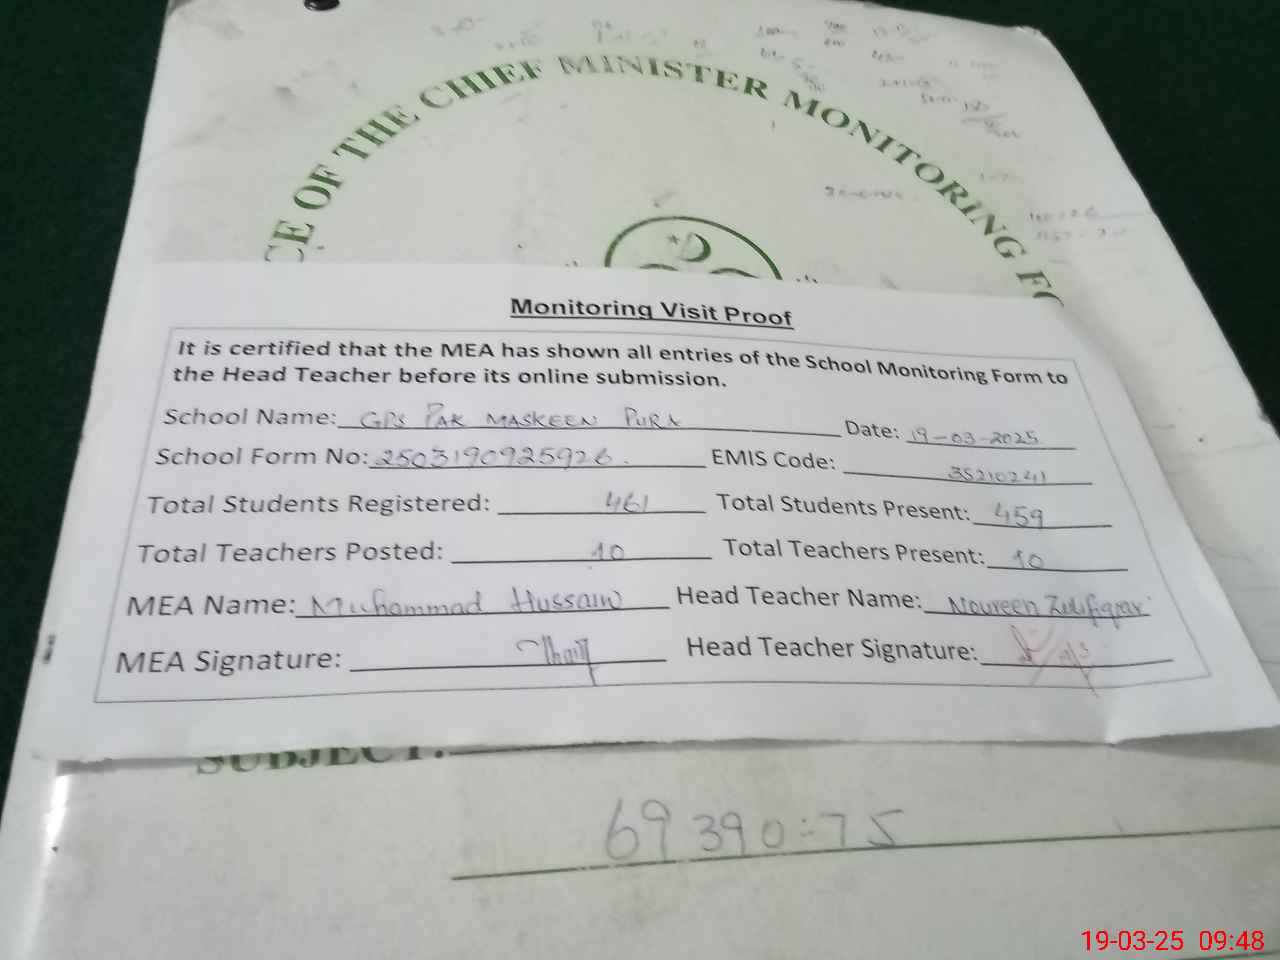 CE OF THE CHIEF MINISTER MONITORING FO
Monitoring Visit Proof
It is certified that the MEA has shown all entries of the School Monitoring Form to
the Head Teacher before its online submission.
School Name: GPS PAK MASKEEN PURA Date: 19-03-2025
School Form No: 2503190925926. EMIS Code: 35210241
Total Students Registered: 461 Total Students Present: 459
Total Teachers Posted: 10 Total Teachers Present: 10
MEA Name: Muhammad Hussain Head Teacher Name: Noureen Zulifiqar
MEA Signature: Head Teacher Signature:
SUBJECT:
69390=75
19-03-25 09:48